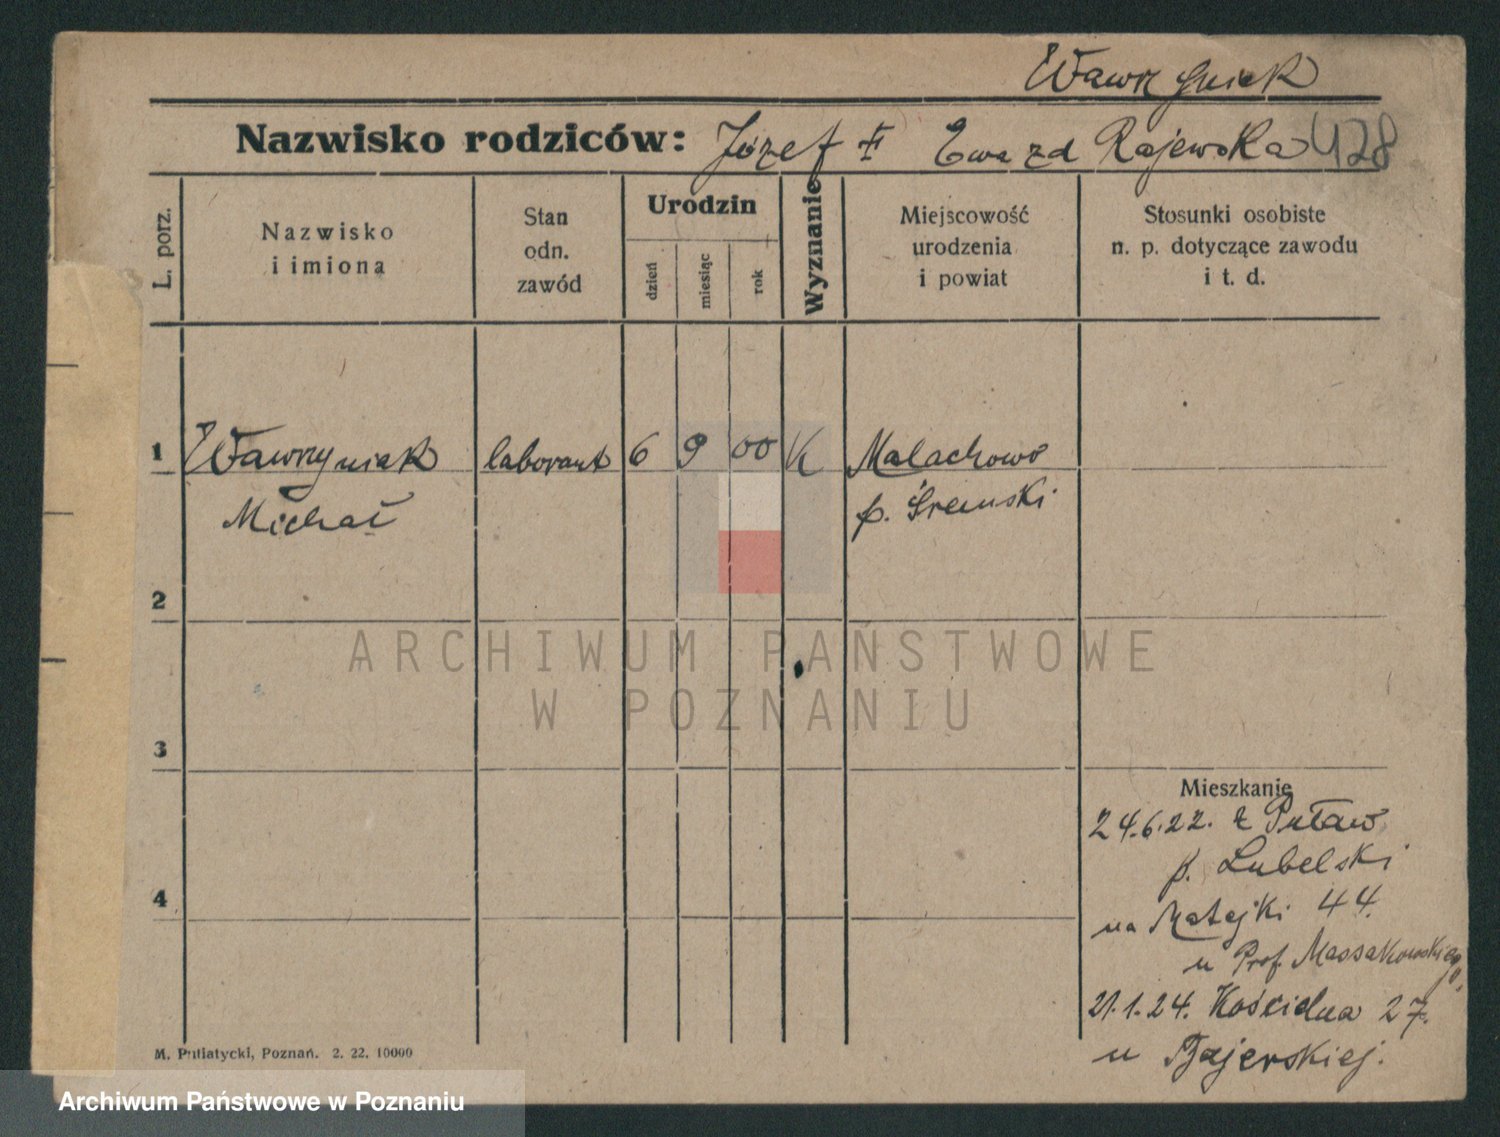 Wawrzyniak
Nazwisko rodziców: Józef † Ewa zd Rajewska 428
L. porz.
Nazwisko
i imiona
Stan
odn.
zawód
Urodzin
dzień
miesiąc
rok
Wyznanie
Miejscowość
urodzenia
i powiat
Stosunki osobiste
n. p. dotyczące zawodu
i t. d.
1 Wawrzyniak laborant 6 9 00 K Malachowo
Michał p. Śremski
2
ARCHIWUM PAŃSTWOWE
W POZNANIU
3
Mieszkanie
24.6.22. z Puław
p. Lubelski
4
na Matejki 44.
u Prof. Massakowskiego,
21.1.24. Kościelna 27.
u Bajerskiej.
M. Putiatycki, Poznań. 2. 22. 10000
Archiwum Państwowe w Poznaniu